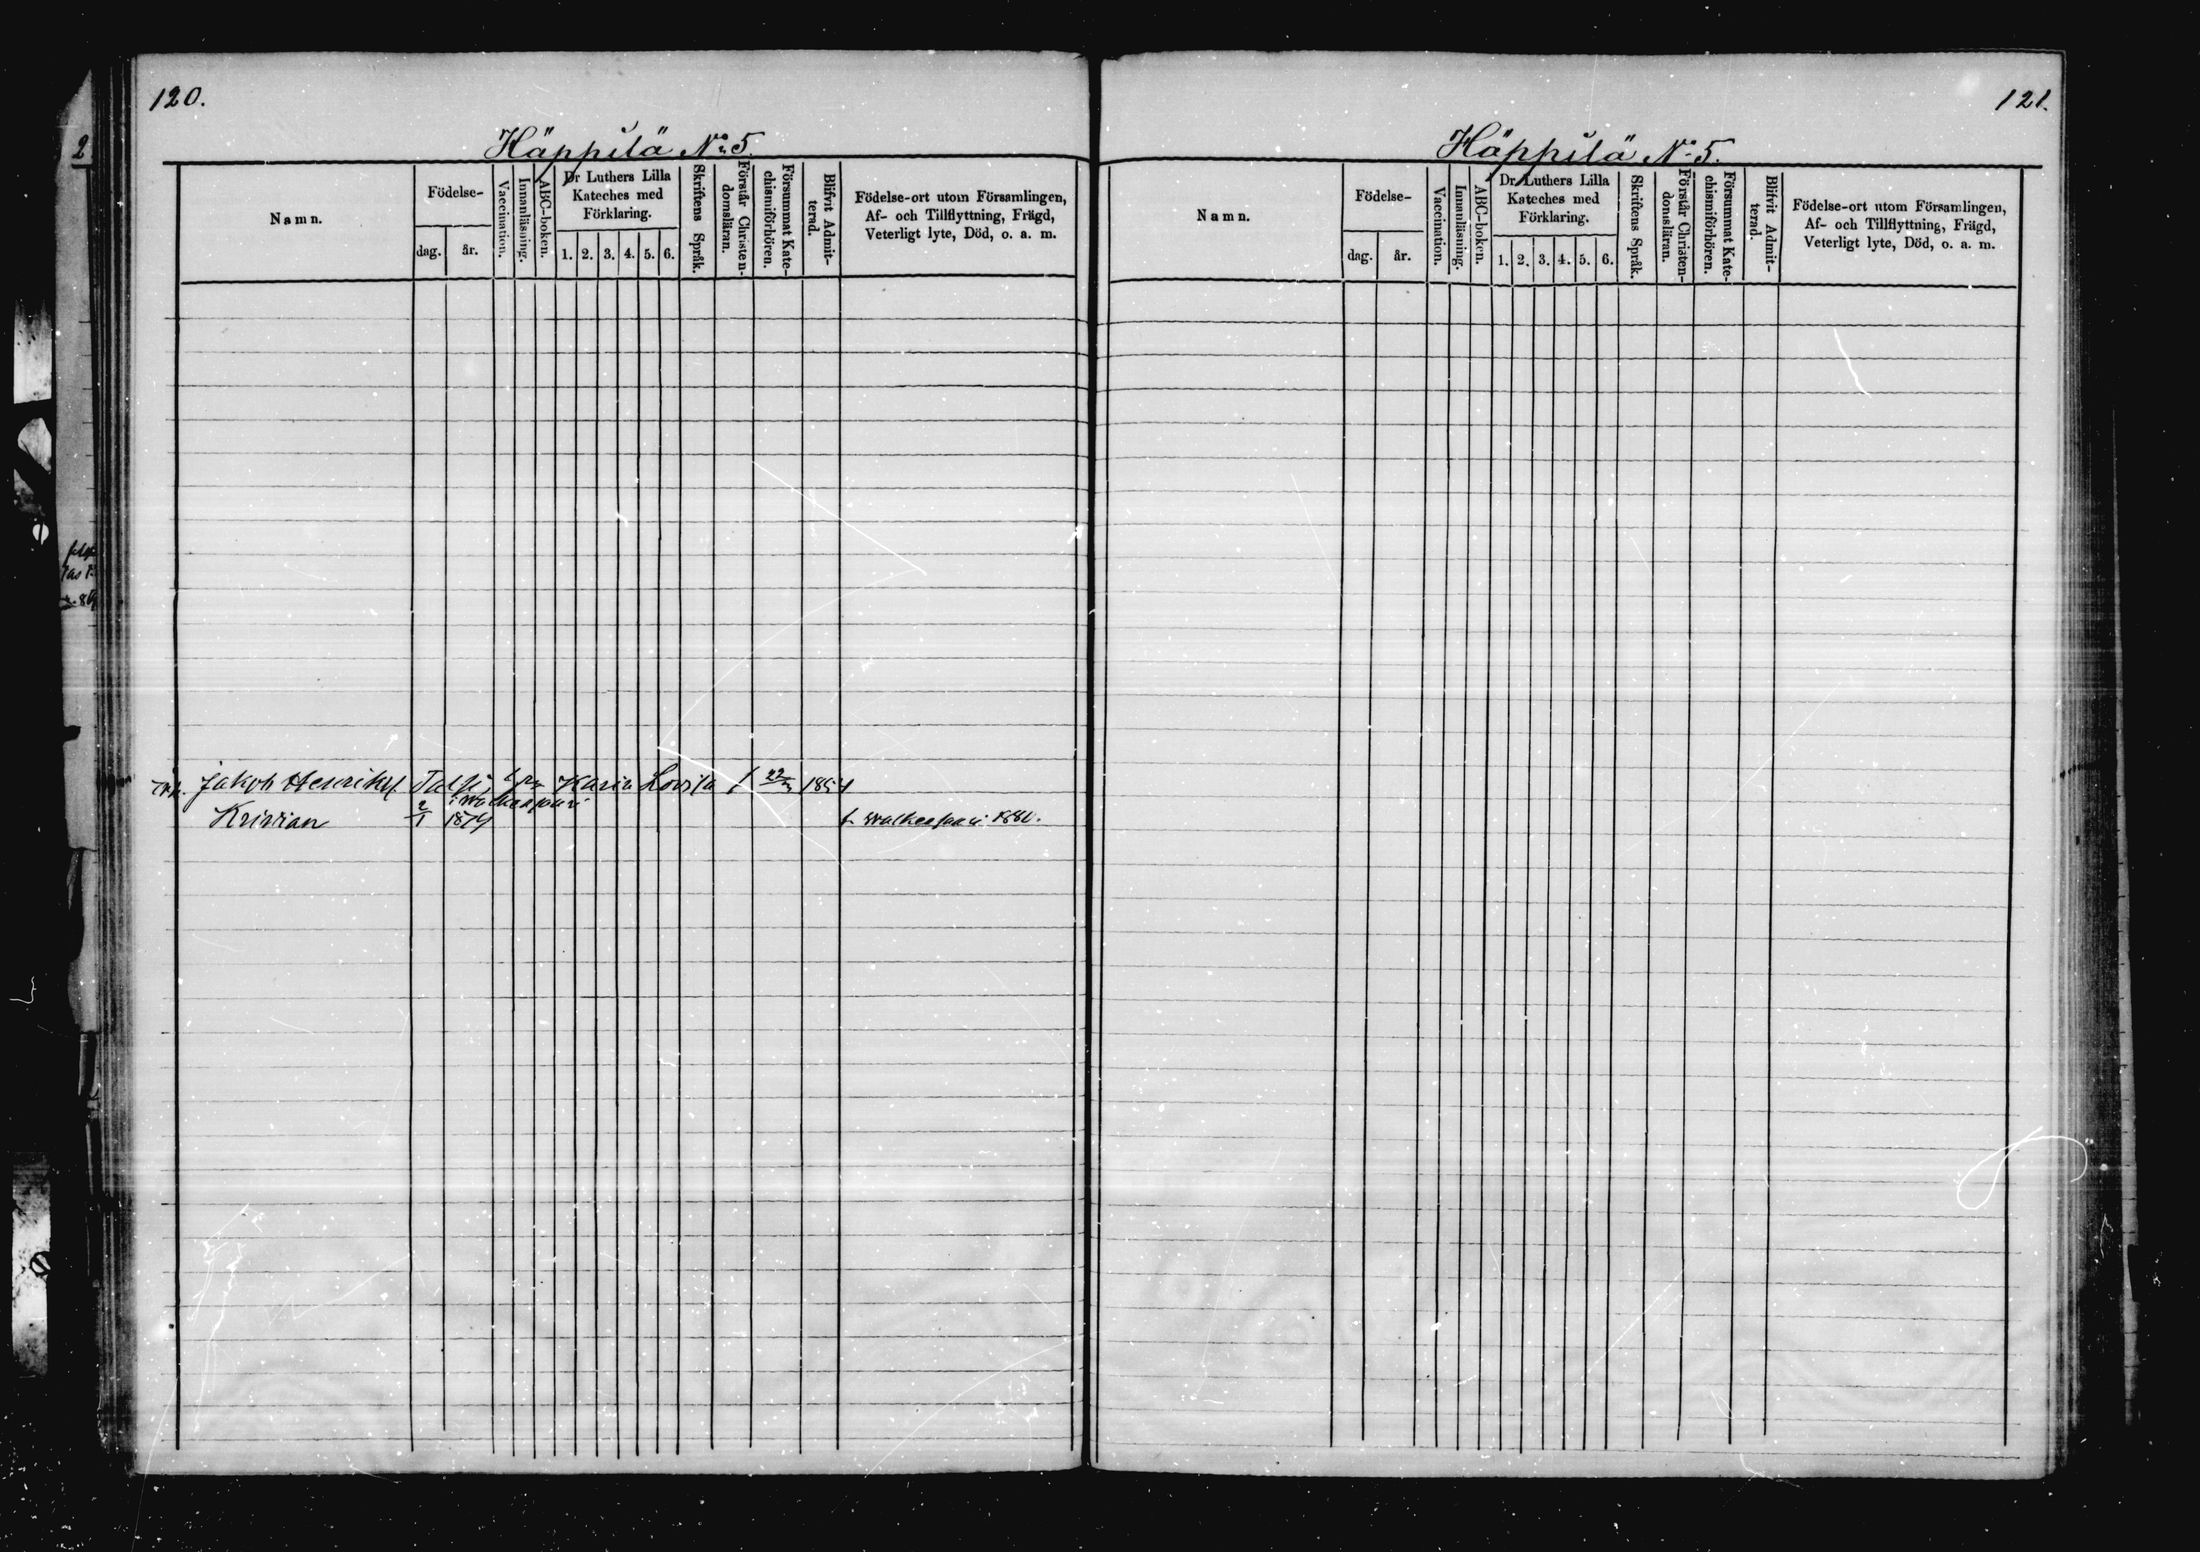 120.
Häppilä No 5.
Namn.
Födelse-
dag.
år.
Vaccination.
Innanläsning.
ABC-boken.
Dr Luthers Lilla
Kateches med
Förklaring.
1. 2. 3. 4. 5. 6.
Skriftens Språk.
Förstår Christen-
domsläran.
Försummat Kate-
chismiförhören.
Blifvit Admit-
terad.
Födelse-ort utom Församlingen,
Af- och Tillflyttning, Frägd,
Veterligt lyte, Död, o. a. m.
Jakob Henriks Karia Lovisa f 22 1854
Kristian 2/1 1874 1880.
121.
Häppilä No 5.
Namn.
Födelse-
dag.
år.
Vaccination.
Innanläsning.
ABC-boken.
Dr Luthers Lilla
Kateches med
Förklaring.
1. 2. 3. 4. 5. 6.
Skriftens Språk.
Förstår Christen-
domsläran.
Försummat Kate-
chismiförhören.
Blifvit Admit-
terad.
Födelse-ort utom Församlingen,
Af- och Tillflyttning, Frägd,
Veterligt lyte, Död, o. a. m.